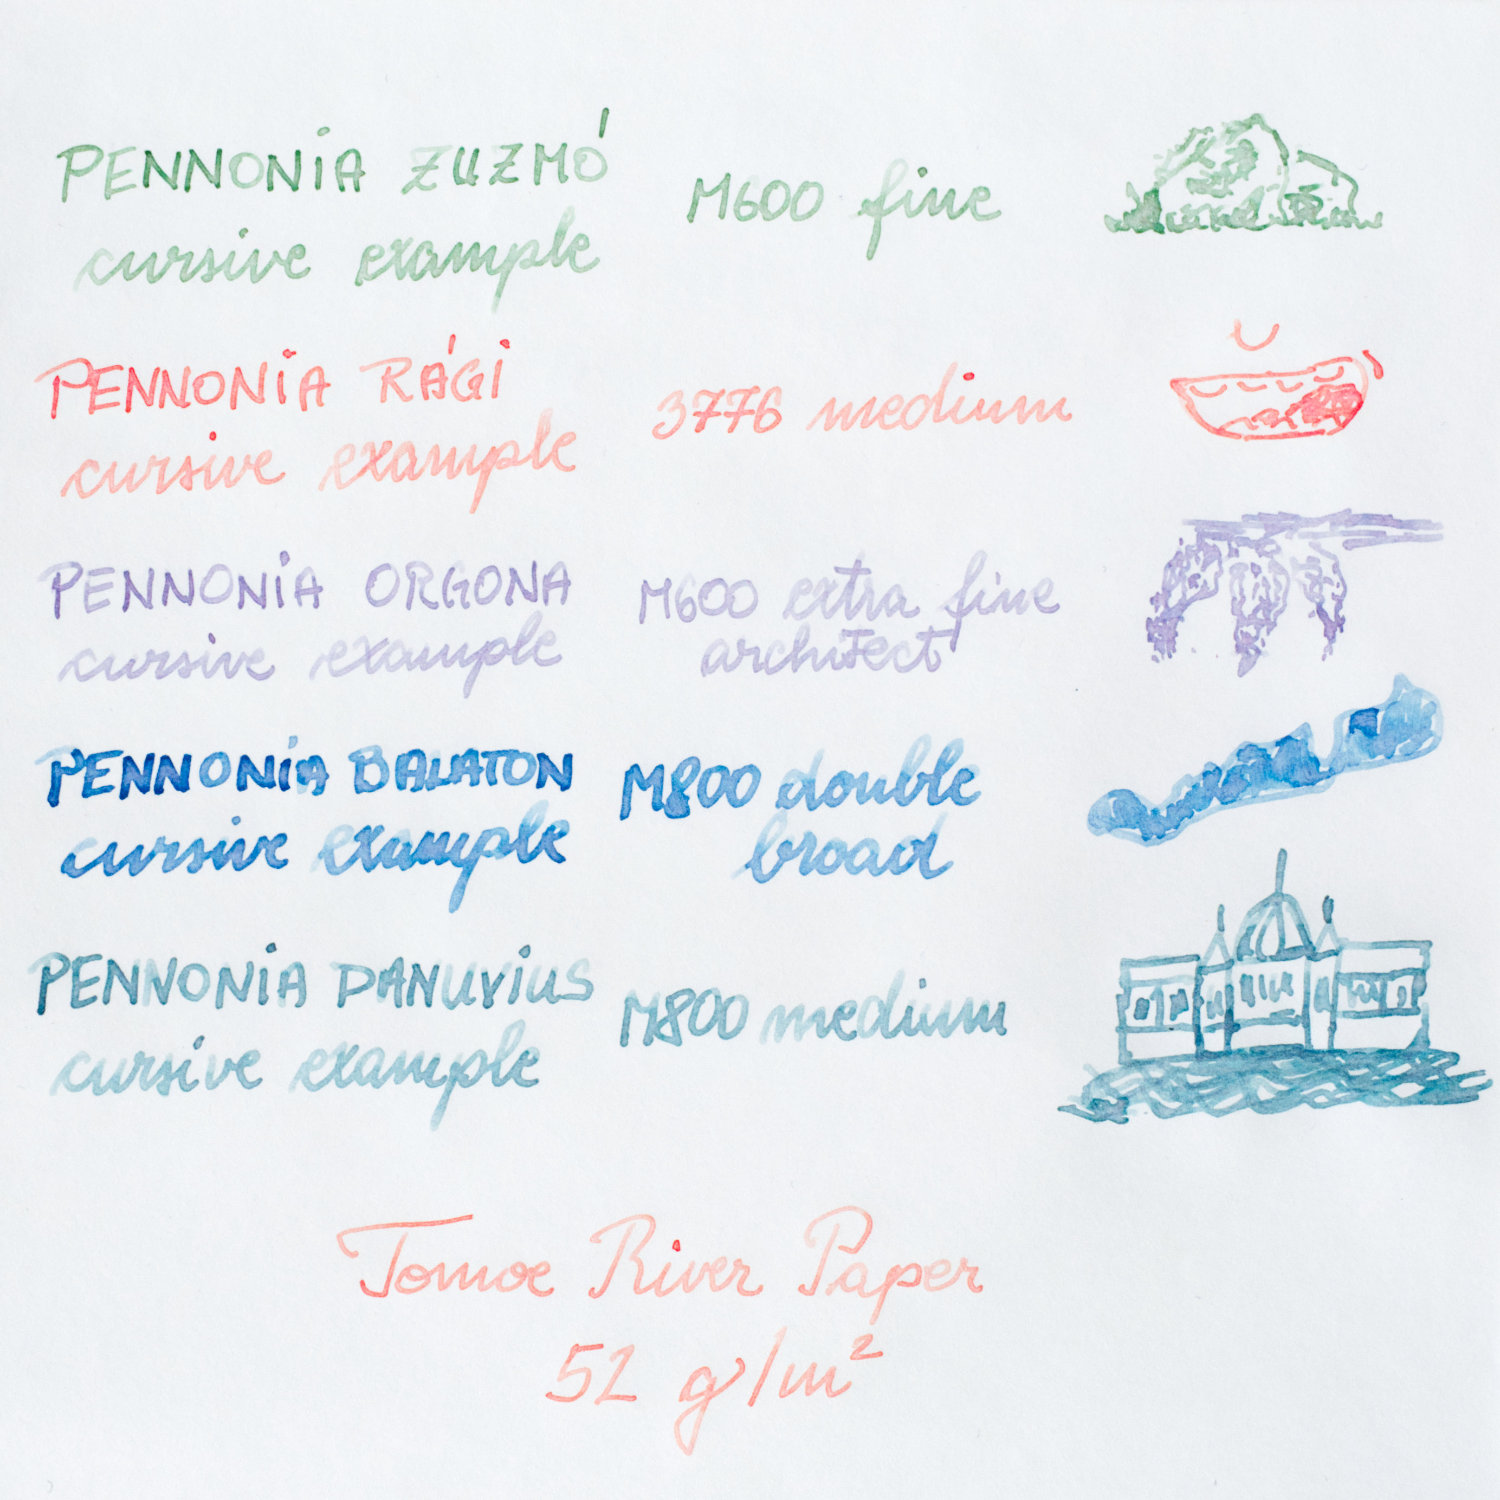 PENNONIA ZUZMÓ
M600 fine
cursive example
PENNONIA RÁGI
3776 medium
cursive example
PENNONIA ORGONA
M600 extra fine
architect
cursive example
PENNONIA BALATON
M800 double
broad
cursive example
PENNONIA DANUVIUS
M800 medium
cursive example
Tomoe River Paper
52 g/m²